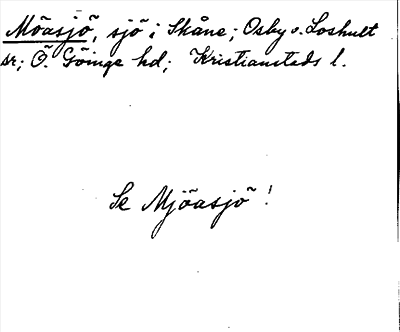 Möasjö, sjö i Skåne; Osby o. Loshult
sr; Ö. Göinge hd; Kristianstads l.
Se Mjöasjö!